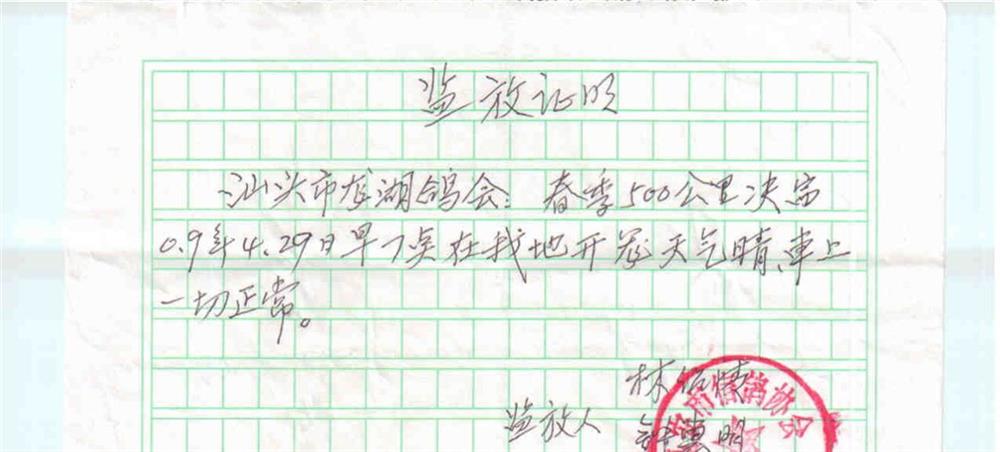 监放证明
汕头市龙湖鸽会：春季500公里决赛
0.9年4.29日早7点在我地开笼天气晴、車上
一切正常。
监放人
市信鸽协会